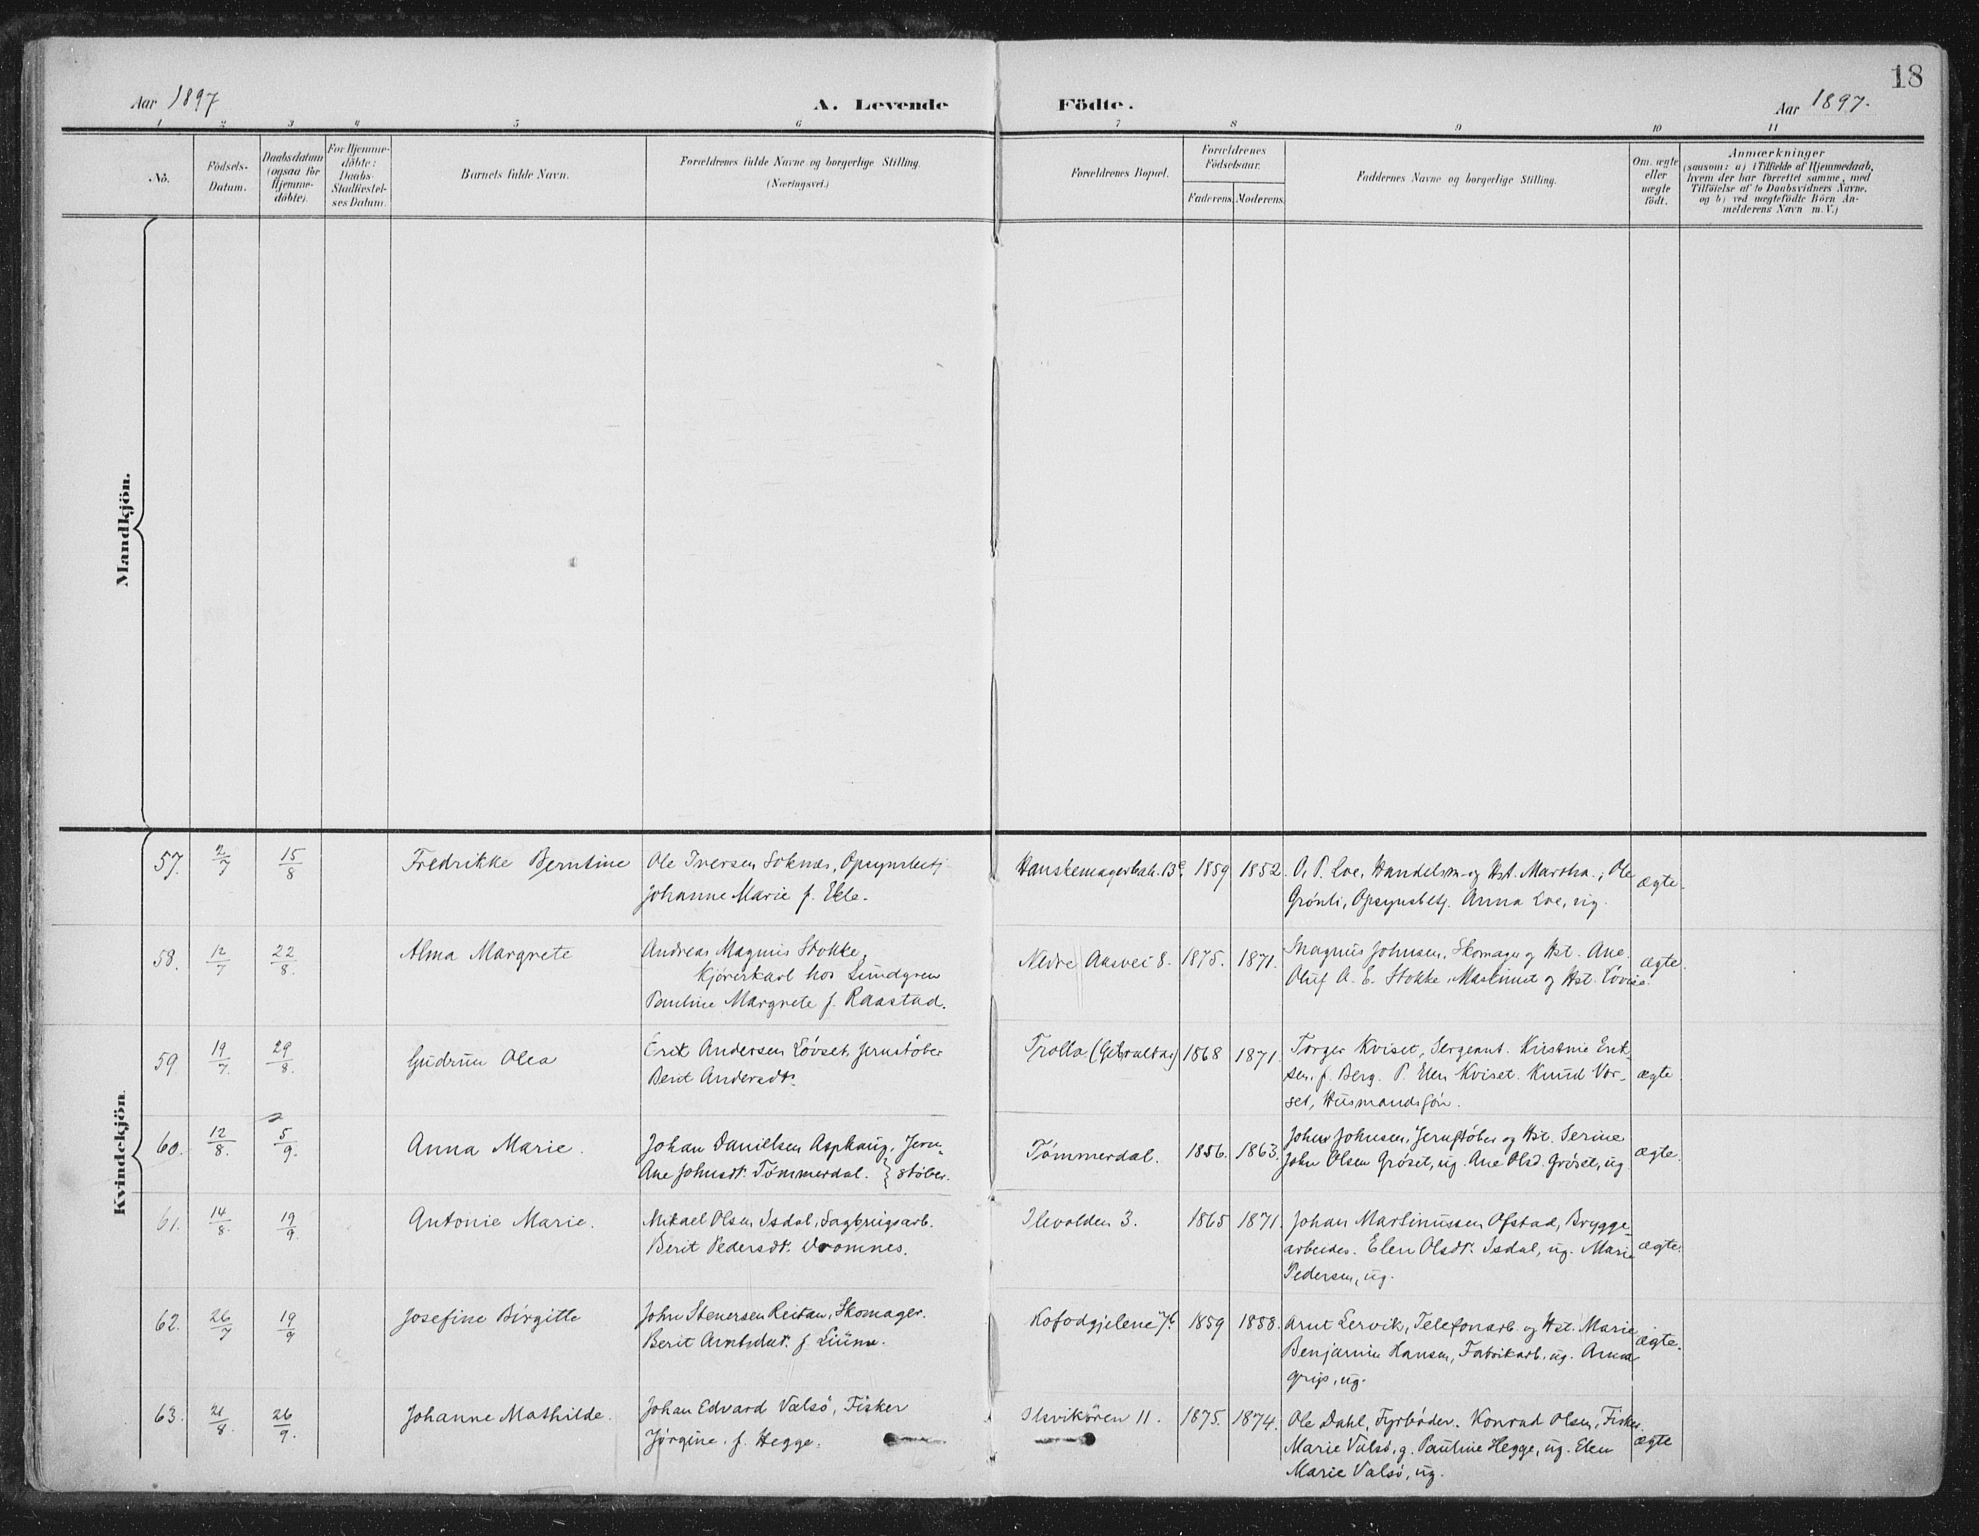 18
Aar 1897 A. Levende Födte. Aar 1897.
1 2 3 4 5 6 7 8 9 10 11
No. Födsels-Datum. Daabsdatum (ogsaa for Hjemme-döbte). For Hjemme-döbte: Daabs-Stadfæstel-ses Datum. Barnets fulde Navn. Forældrenes fulde Navne og borgerlige Stilling. (Næringsvei.) Forældrenes Bopæl. Forældrenes Födselsaar. Faderens. Moderens. Faddernes Navne og borgerlige Stilling. Om ægte eller uægte födt. Anmærkninger
(saasom: a) i Tilfælde af Hjemmedaab,
hvem der har forrettet samme, med
Tilföielse af to Daabsvidners Navne,
og b) ved uægtefödte Börn An-
melderens Navn m. V.)
Mandkjön.
Kvindekjön.
57. 2/7 15/8 Fredrikke Berntine Ole Iversen Soknes, Opsynsbetj. 1859 1852 O. P. Loe, Handelsm. og Hst. Martha, Ole
Johanne Marie f. Ekle. Grönli, Opsynsbetj. Anna Loe, ug. ægte.
58. 12/7 22/8. Alma Margrete Andreas Magnus Stokke, Nedre Aasvei 8. 1875. 1871. Magnus Johnsen, Skomager og Hst. Ane.
Kjörerkarl hos Lundgren Oluf A. E. Stokke, Maskinist og Hst. Lovise. ægte.
Pauline Margrete f. Raastad.
59 19/7. 29/8. Gudrun Olea Erik Andersen Lövset, Jernstöber Trolla (Gibraltar) 1868 1871. Torger Kviset, Sergeant. Kirstine Erik-
Berit Andersdtr. sen f. Berg. P. Elen Kviset. Knud Vor-
set, Husmandssön. ægte
60. 12/8. 5/9. Anna Marie. Johan Danielsen Asphaug, Jern- Tömmerdal. 1856. 1863. John Johnsen, Jernstöber og Hst. Serine
Ane Johnsdtr. Tömmerdal. } stöber. John Olsen Gröset, ug. Ane Olsd. Gröset, ug ægte.
61. 14/8. 19/9. Antonie Marie. Mikael Olsen Isdal, Sagbrugsarb. Ilevolden 3. 1865 1871. Johan Martinussen Ofstad, Brygge-
Berit Pedersdtr. Vromnes. arbeider. Elen Olsdtr. Isdal, ug. Marie ægte.
Pedersen, ug.
62. 26/7 19/9 Josefine Birgitte John Stenersen Reitan, Skomager. 1859 1858. Arnt Lervik, Telefonarb. og Hst. Marie
Berit Arntsdatr. f. Benjamin Hansen, Fabrikarb. ug. Anna ægte.
Grip, ug.
63. 21/8. 26/9. Johanne Mathilde. Johan Edvard Valsö, Fisker Ilsvikören 11. 1875. 1874. Ole Dahl, Fyrböder. Konrad Olsen, Fisker.
Jörgine f. Hegge. Marie Valsö, g. Pauline Hegge, ug. Elen ægte
Marie Valsö, ug.